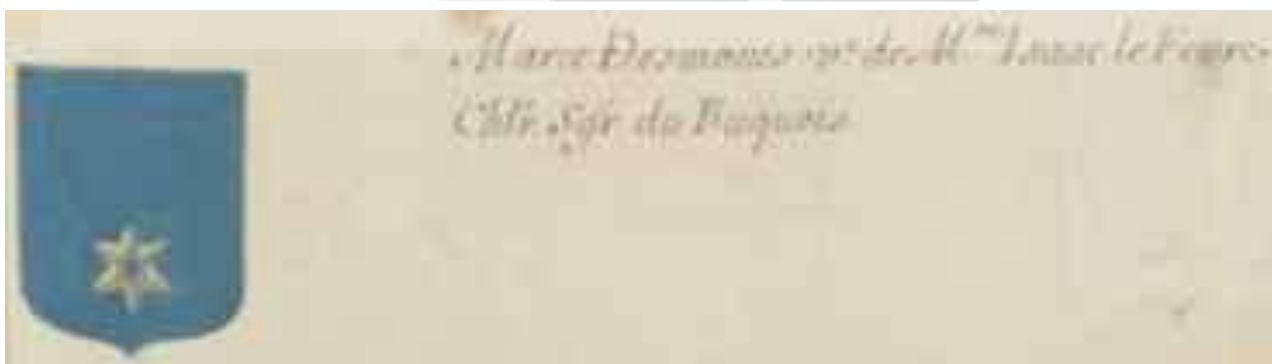 Marie Desmonts v.e de M.re Isaac le Fevre
Chlr. Sgr du Faquets